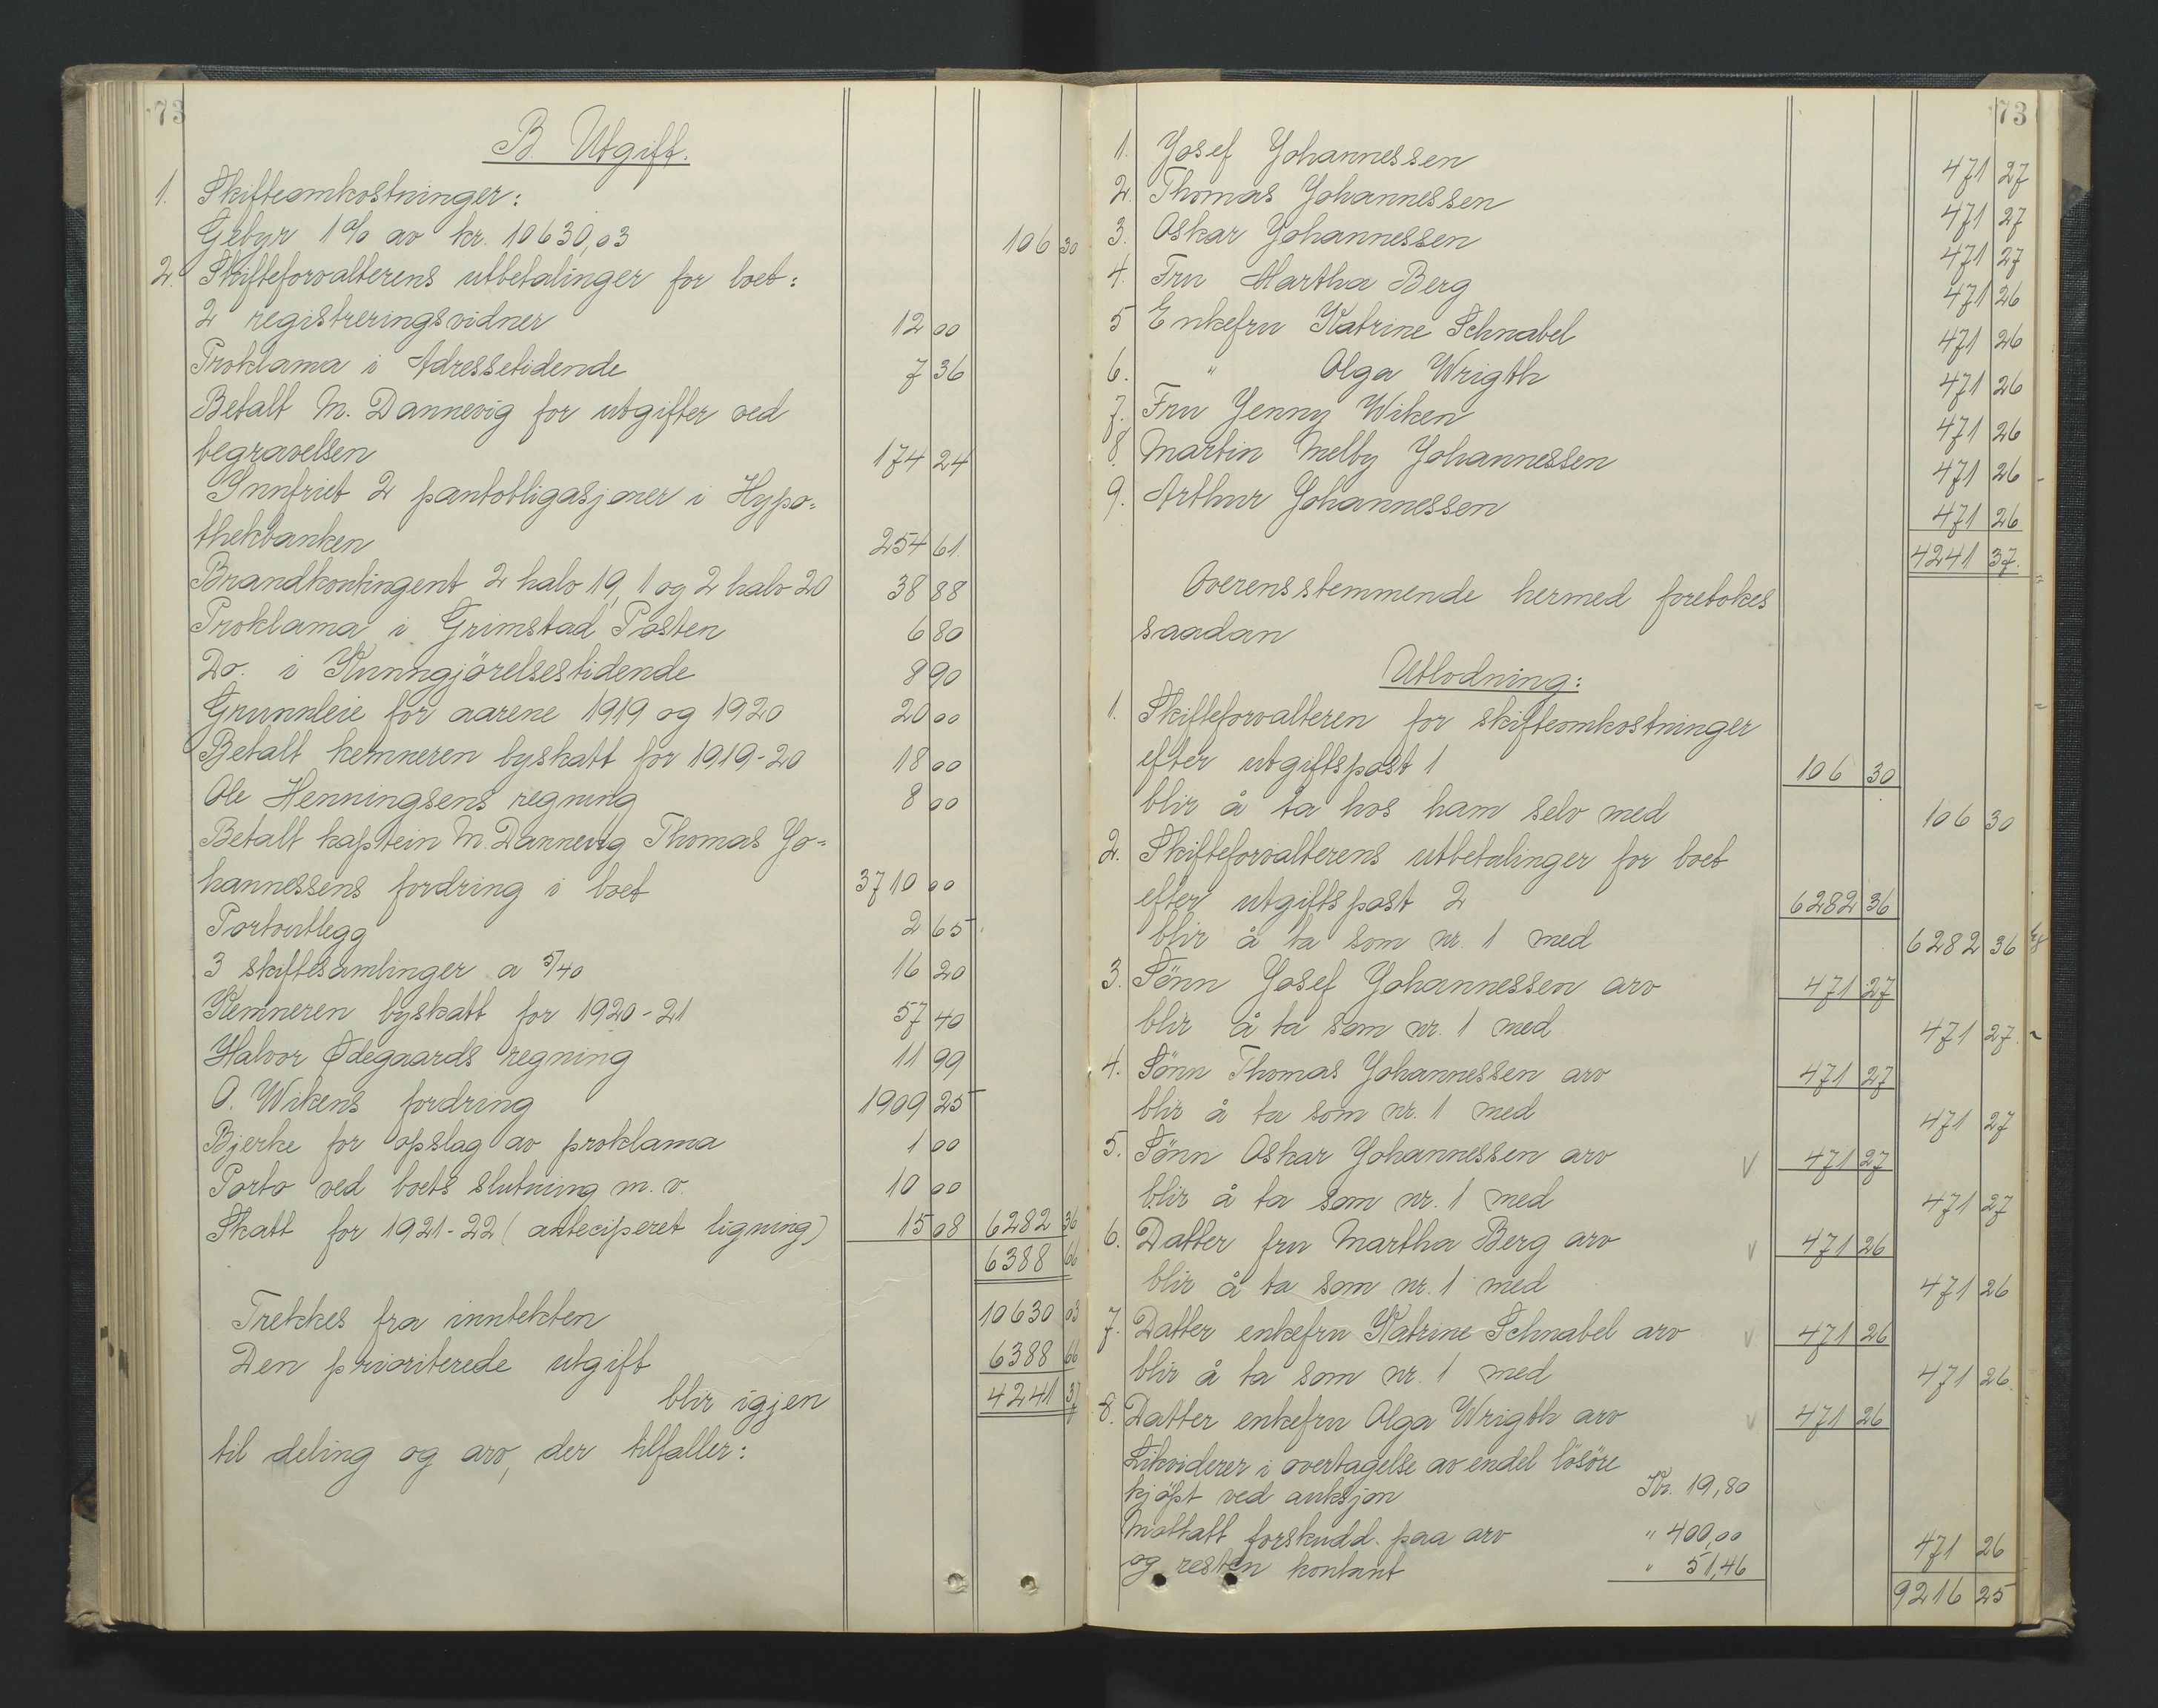 73
B Utgift.
1. Skifteomkostninger:
Gebyr 1% av kr. 10630,03 106 30
2. Skifteforvalterens utbetalinger for boet:
2 registreringsvidner 12 00
Proklama i Adressetidende 7 36
Betalt M. Dannevig for utgifter ved
begravelsen 174 24
Innfriet 2 pantobligasjoner i Hypo=
thekbanken 254 61.
Brandkontingent 2 halv 19, 1 og 2 halv 20 38 88
Proklama i Grimstad Posten 6 80
Do. i Kunngjørelsestidende 8 90
Grunnleie for aarene 1919 og 1920 20 00
Betalt kemneren byskatt for 1919-20 18 00
Ole Henningsens regning 8 00
Betalt kaptein M. Dannevig Thomas Jo=
hannessens fordring i boet 3710 00
Portoutlegg 2 65
3 skiftesamlinger a 5/40 16 20
Kemneren byskatt for 1920-21 57 40
Halvor Ødegaards regning 11 99
O. Wikens fordring 1909 25
Bjerke for opslag av proklama 1 00
Porto ved boets slutning m. v. 10 00
Skatt for 1921-22 (anteciperet ligning) 15 08 6282 36
6388 66
Trekkes fra inntekten 10630 03
Den prioriterede utgift 6388 66
blir igjen 4241 37
til deling og arv, der tilfaller:
73
1. Josef Johannessen 471 27
2. Thomas Johannessen 471 27
3. Oskar Johannessen 471 27
4. Fru Martha Berg 471 26
5 Enkefru Katrine Schnabel 471 26
6. " Olga Wrigth 471 26
7. Fru Jenny Wiken 471 26
8. Martin Melby Johannessen 471 26
9. Arthur Johannessen 471 26
4241 37.
Overensstemmende hermed foretokes
saadan
Utlodning:
1. Skifteforvalteren for skifteomkostninger
efter utgiftspost 1 106 30
blir å ta hos ham selv med 106 30
2. Skifteforvalterens utbetalinger for boet
efter utgiftspost 2 6282 36
blir å ta som nr. 1 med 6282 36
3. Sønn Josef Johannessen arv 471 27
blir å ta som nr. 1 med 471 27.
4. Sønn Thomas Johannessen arv 471 27
blir å ta som nr. 1 med 471 27
5. Sønn Oskar Johannessen arv V 471 27
blir å ta som nr. 1 med 471 27
6. Datter fru Martha Berg arv V 471 26
blir å ta som nr. 1 med 471 26
7. Datter enkefru Katrine Schnabel arv V 471 26
blir å ta som nr. 1 med 471 26
8. Datter enkefru Olga Wrigth arv V 471 26
Likviderer i overtagelse av endel løsøre
kjøpt ved auksjon Kr. 19,80
Mottatt forskudd paa arv " 400,00
og resten kontant " 51,46 471 26
9216 25